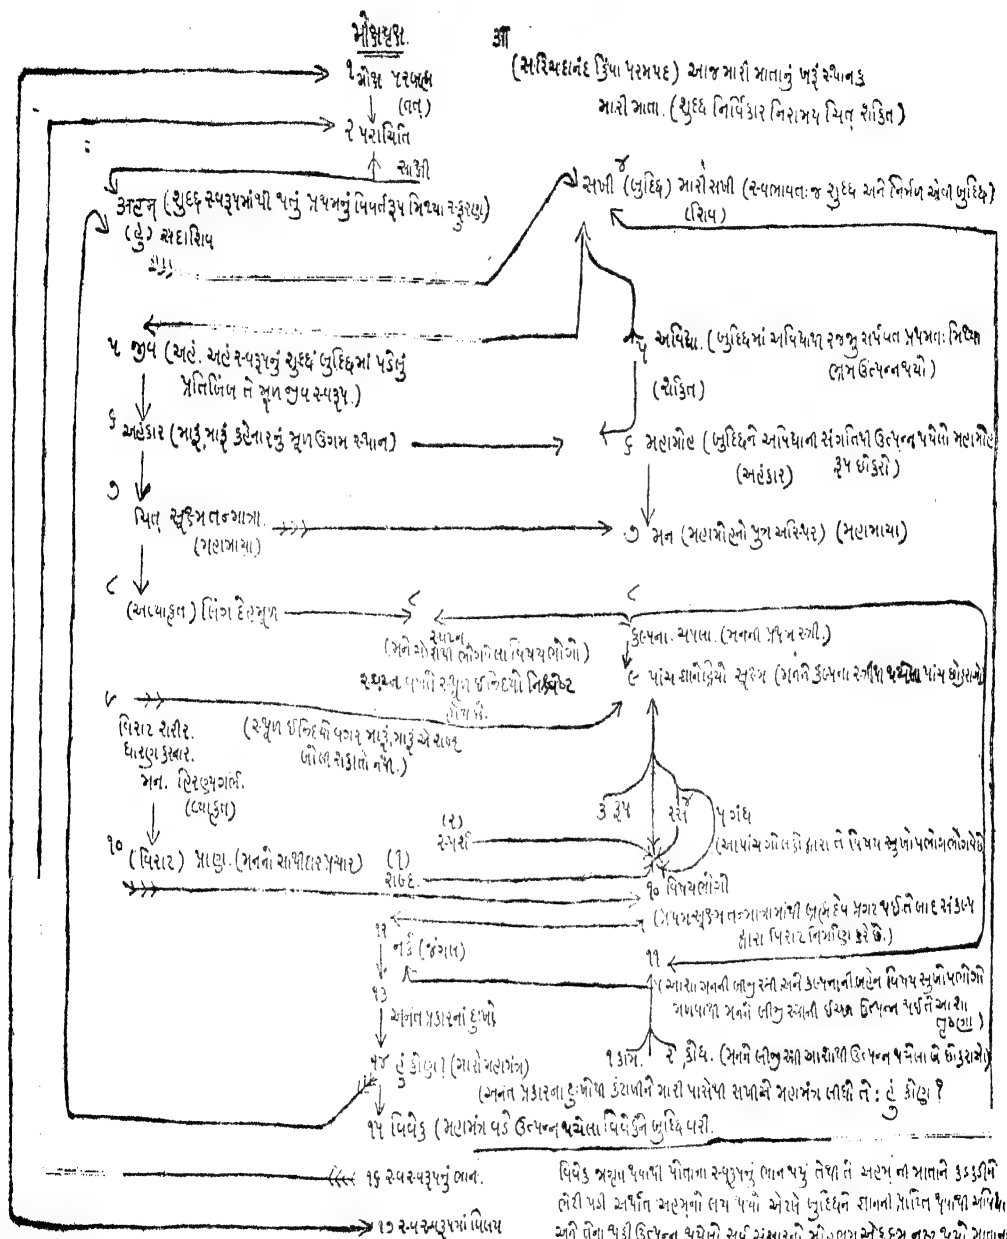 મોક્ષવૃક્ષ.
૧ મોક્ષ પરબ્રહ્મ
(તત્)
૨ પરાચિતિ
સાક્ષી
(સચ્ચિદાનંદ કિંવા પરમપદ) આજ મારી માતાનું ખરૂં સ્થાનક
મારી માતા. (શુદ્ધ નિર્વિકાર નિરામય ચિત્ શક્તિ)
અહમ્ (શુદ્ધ સ્વરૂપમાંથી થતું પ્રથમનું વિવર્તરૂપ મિથ્યા સ્ફુરણ)
(હું) સદાશિવ
૪
સખી (બુદ્ધિ) મારી સખી (સ્વભાવતઃજ શુદ્ધ અને નિર્મળ એવી બુદ્ધિ)
(શિવ)
૫ જીવ (અહં. અહં સ્વરૂપનું શુદ્ધ બુદ્ધિમાં પડેલું
પ્રતિબિંબ તે મૂળ જીવ સ્વરૂપ.)
૫ અવિદ્યા. (બુદ્ધિમાં અવિદ્યાથી રજ્જુ સર્પવત પ્રથમતઃ મિથ્યા
ભ્રામ ઉત્પન્ન થયો)
(શક્તિ)
૬ અહંકાર (મારૂં, મારૂં કહેનારનું મૂળ ઉગમ સ્થાન)
૬ મહામોહ (બુદ્ધિને અવિદ્યાની સંગતિથી ઉત્પન્ન થયેલો મહામોહ
(અહંકાર) રૂપ છોકરો)
૭
ચિત્ સૂક્ષ્મ તન્માત્રા.
(મહામાયા)
૭ મન (મહામોહનો પુત્ર અસ્થિર) (મહામાયા)
૮
(અવ્યાકૃત) લિંગ દેહમૂળ
૮
સ્વપ્ન
(મને ચોરીથી ભોગવેલા વિષયભોગો)
સ્વપ્નમાં સ્થૂળ ઇન્દ્રિયો નિશ્ચેષ્ટ
હોય છે.
૮
કલ્પના. ચપલા. (મનની પ્રથમ સ્ત્રી.)
૯ પાંચ જ્ઞાનેન્દ્રિયો સૂક્ષ્મ (મનને કલ્પના સ્ત્રીથી થયેલા પાંચ છોકરાઓ)
૯
વિરાટ શરીર.
ધારણ કરનાર.
મન. હિરણ્યગર્ભ.
(વ્યાકૃત)
(સ્થૂળ ઇન્દ્રિયો વગર મારૂં, મારૂં એ શબ્દ
બોલી શકાતો નથી.)
૩ રૂપ
૪ રસ
૫ ગંધ
(૨)
સ્પર્શ
(આ પાંચ ગોલકો દ્વારા તે વિષય સુખોપભોગ ભોગવે છે
૧૦ (વિરાટ) પ્રાણ. (મનનો સાથીદાર પ્રચાર)
(૧)
શબ્દ.
૧૦ વિષયભોગી
(પ્રથમ સૂક્ષ્મ તન્માત્રામાંથી બ્રહ્મદેવ પ્રગટ થઈ તે બાદ સંકલ્પ
દ્વારા વિરાટ નિર્માણ કરે છે.)
૧૨
નર્ક (જંગલ)
૧૧
(આશા મનની બીજી સ્ત્રી અને કલ્પનાની બહેન વિષય સુખોપભોગો
મળવાથી મનને બીજી સ્ત્રીની ઈચ્છા ઉત્પન્ન થઈ તે આશા
તૃષ્ણા)
૧૩
અનંત પ્રકારનાં દુઃખો
૧ કામ. ૨ ક્રોધ. (મનને બીજી સ્ત્રી આશાથી ઉત્પન્ન થયેલા બે છોકરાઓ)
૧૪ હું કોણ? (મારો મહામંત્ર)
(અનંત પ્રકારના દુઃખોથી કંટાળીને મારી પાસેથી સખીએ મહામંત્ર લીધો તે: હું કોણ?
૧૫ વિવેક (મહામંત્ર વડે ઉત્પન્ન થયેલા વિવેકને બુદ્ધિ વરી.
૧૬ સ્વ સ્વરૂપનું ભાન.
૧૭ સ્વ સ્વરૂપમાં વિલય
વિવેક જાગૃત થવાથી પોતાના સ્વરૂપનું ભાન થયું તેથી તે અહમ્ ની માતાને કડકડીને
ભેટી પડી અર્થાત અહમ્નો લય થયો એટલે બુદ્ધિને જ્ઞાનની પ્રાપ્તિ થવાથી અવિદ્યા
અને તેના થકી ઉત્પન્ન થયેલો સર્વ સંસારનો